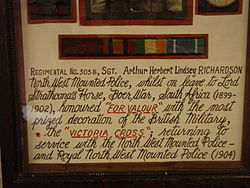 REGIMENTAL No. 3058, SGT. Arthur Herbert Lindsey RICHARDSON
North West Mounted Police, whilst on leave to Lord
Strathcona's Horse, Boer War, South Africa (1899-
1902), honoured "FOR VALOUR" with the most
prized decoration of the British Military,
* the "VICTORIA CROSS"; returning to
service with the North West Mounted Police -
and Royal North West Mounted Police (1904)